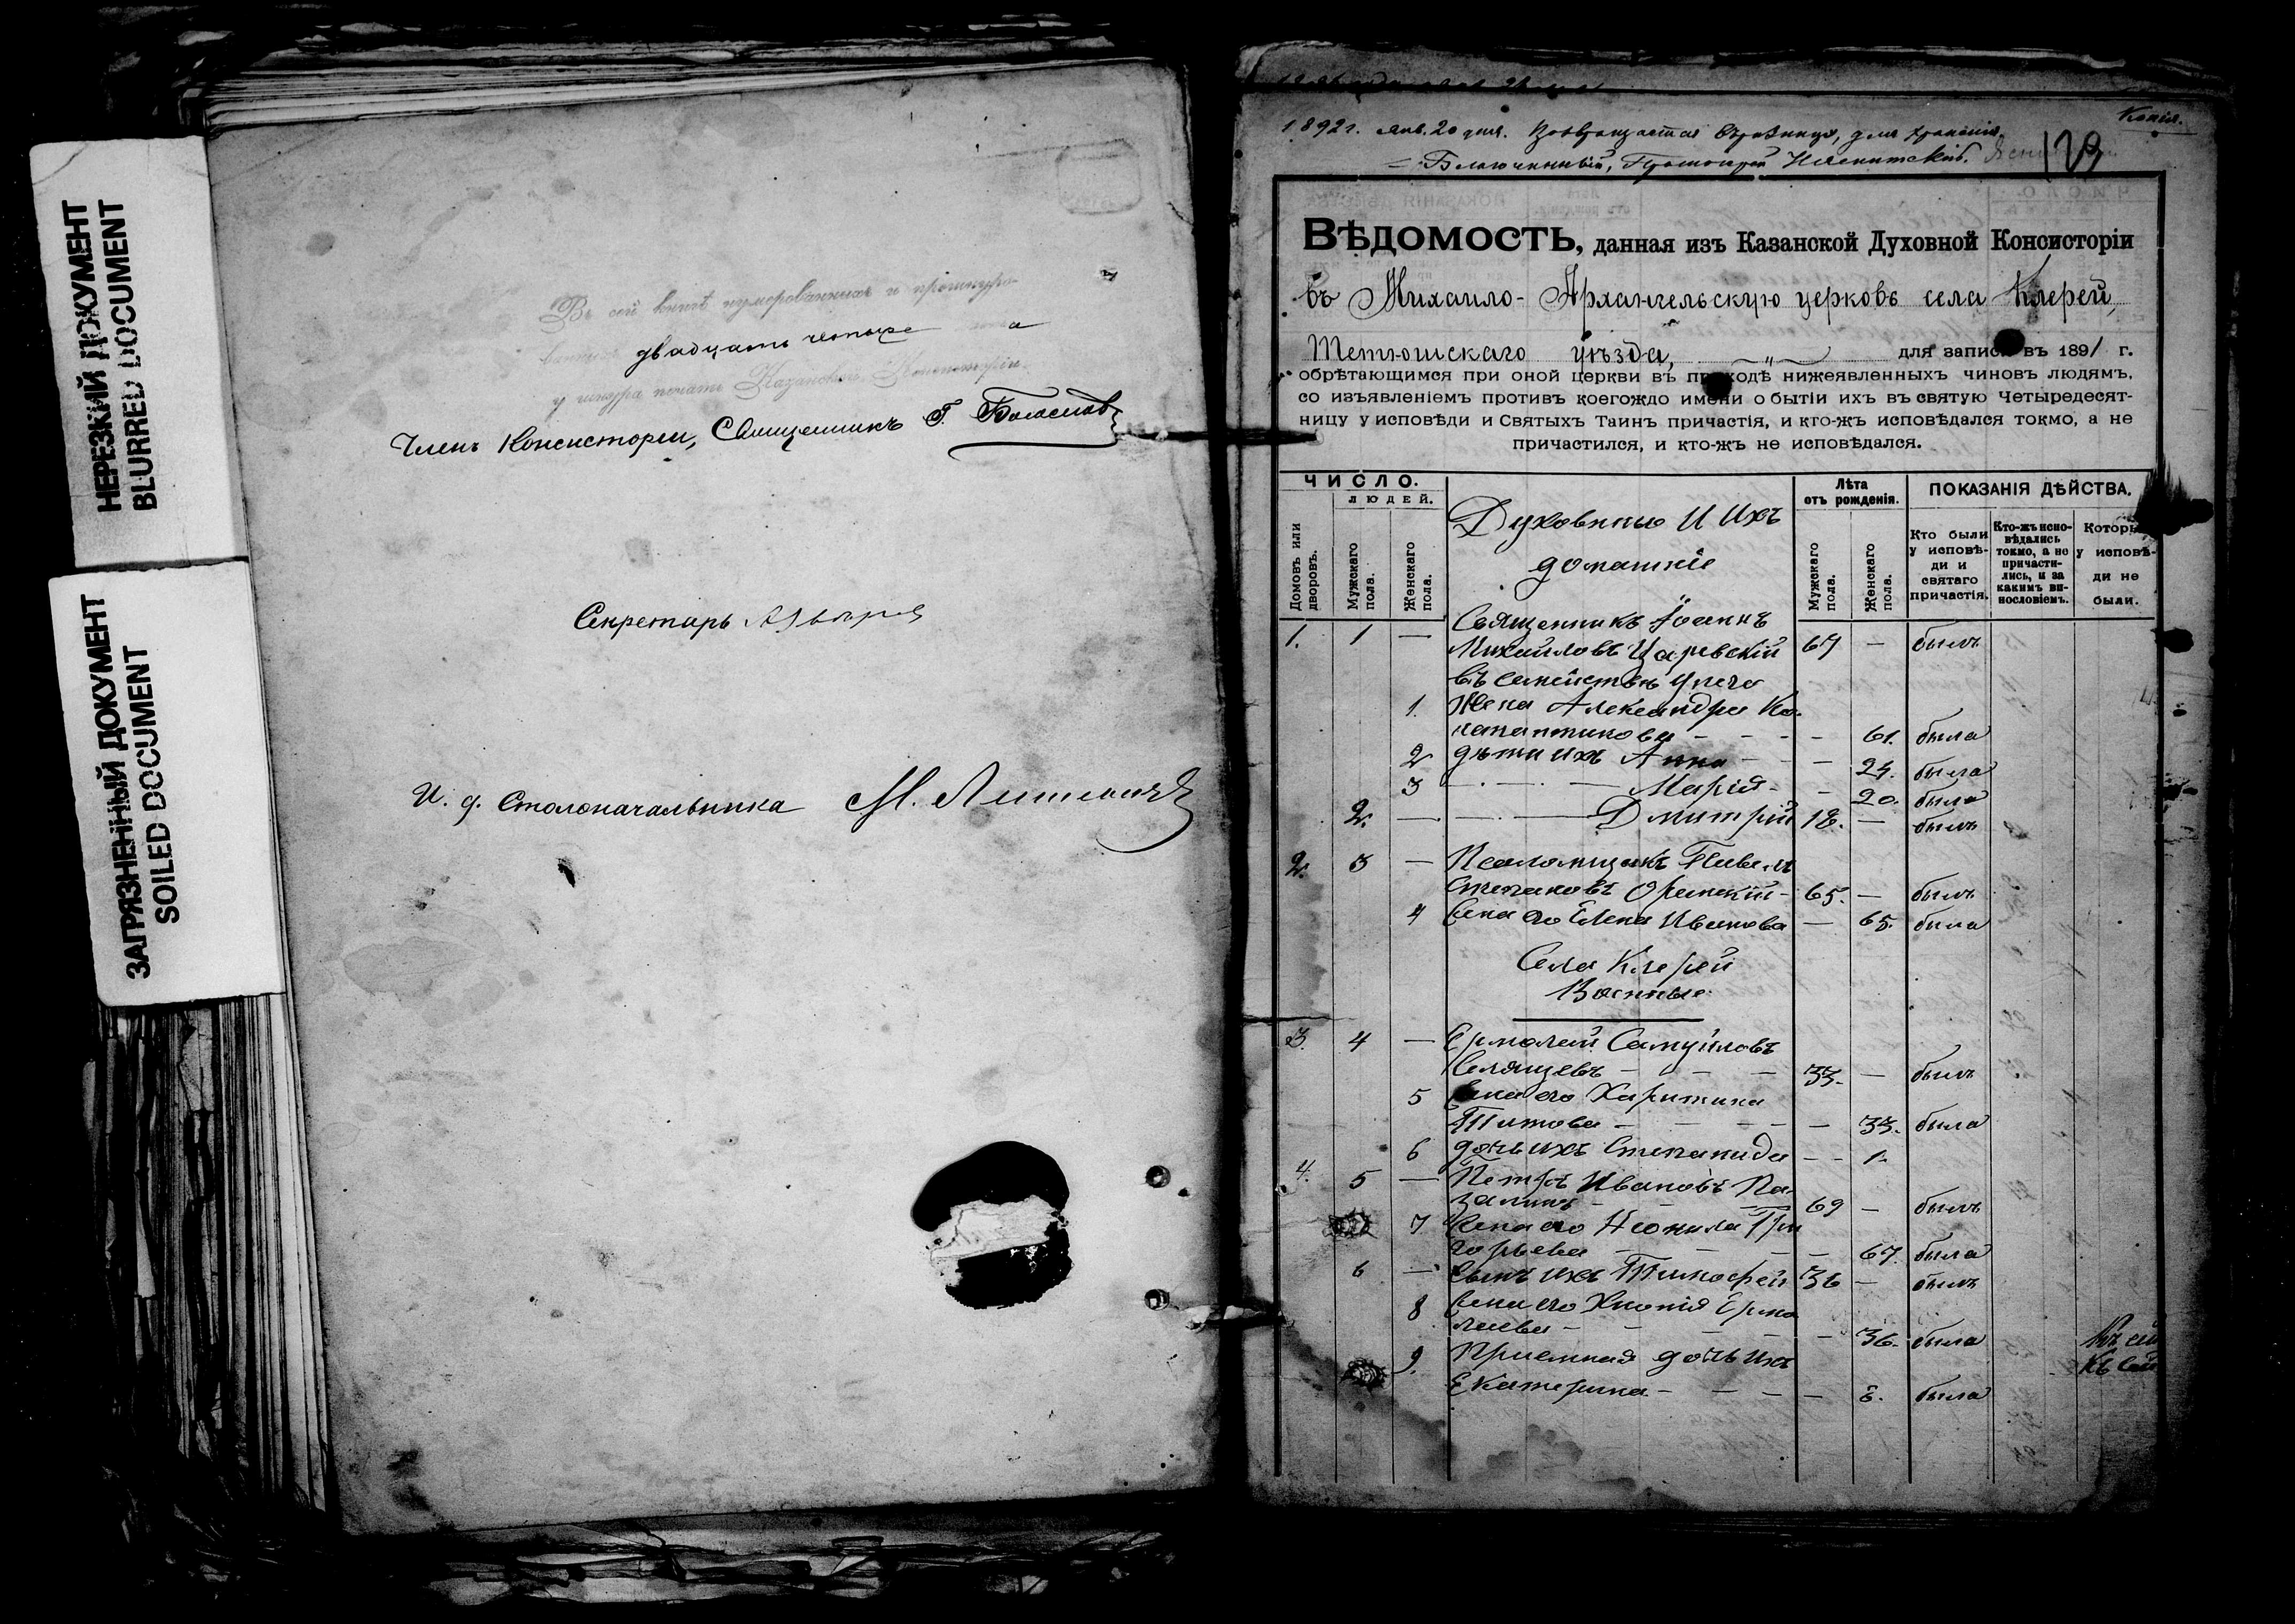 НЕРЕЗКИЙ ДОКУМЕНТ
BLURRED DOCUMENT
ЗАГРЯЗНЕННЫЙ ДОКУМЕНТ
SOILED DOCUMENT
Въ сей книгѣ нумерованныхъ и прошнуро-
двадцать четыре
у шнура печать Казанской Консисторіи.
Членъ Консисторіи, Священникъ
Секретарь
И. д. Столоначальника М.
Копія.
1892 г. Янв. 20 дня. Возвращается для храненія.
Благочинный, Протоіерей
ВѢДОМОСТЬ, данная изъ Казанской Духовной Консисторіи
въ Михаило-Архангельскую церковь села Клерей,
Тетюшскаго уѣзда, " для записи въ 1891 г.
обрѣтающимся при оной церкви въ приходѣ нижеявленныхъ чиновъ людямъ,
со изъявленіемъ противъ коегождо имени о бытіи ихъ въ святую Четыредесят-
ницу у исповѣди и Святыхъ Таинъ причастія, и кто-жъ исповѣдался токмо, а не
причастился, и кто-жъ не исповѣдался.
ЧИСЛО.
ЛЮДЕЙ.
Домовъ или дворовъ.
Мужскаго пола.
Женскаго пола.
Духовные и ихъ
домашніе
Лѣта отъ рожденія.
Мужскаго пола.
Женскаго пола.
ПОКАЗАНІЯ ДѢЙСТВА.
Кто были у исповѣди и святаго причастія.
Кто-жъ исповѣдались токмо, а не причастились, и за какимъ винословіемъ.
Которы у исповѣди не были.
1. 1 — Священникъ Іоаннъ
Михайловъ Царевскій 67 — былъ
въ семействѣ у него
1. Жена Александра Ко-
— 61. была
2 дѣти ихъ Анна — 24. была
3 — Марія — 20. была
2. — Дмитрій 18. — былъ
2. 3 — Псаломщикъ Павелъ
Степановъ 65. — былъ
4 Жена его Елена Иванова — 65. была
Села Клерей
Военные
3. 4 — Ермолай Самуиловъ
Селянцевъ 33. — былъ
5 Жена его Харитина
Титова — 33. была
6 дочь ихъ Степанида — 1.
4. 5 — Петръ Ивановъ Ка-
залинъ 69 — былъ
7 Жена его Неонила Гри
горьева — 67. была
6 — Сынъ ихъ Тимофей 36 — былъ
8 Жена его Ермо
лаева — 36. была
9. Приемная дочь ихъ
Екатерина — 8. была